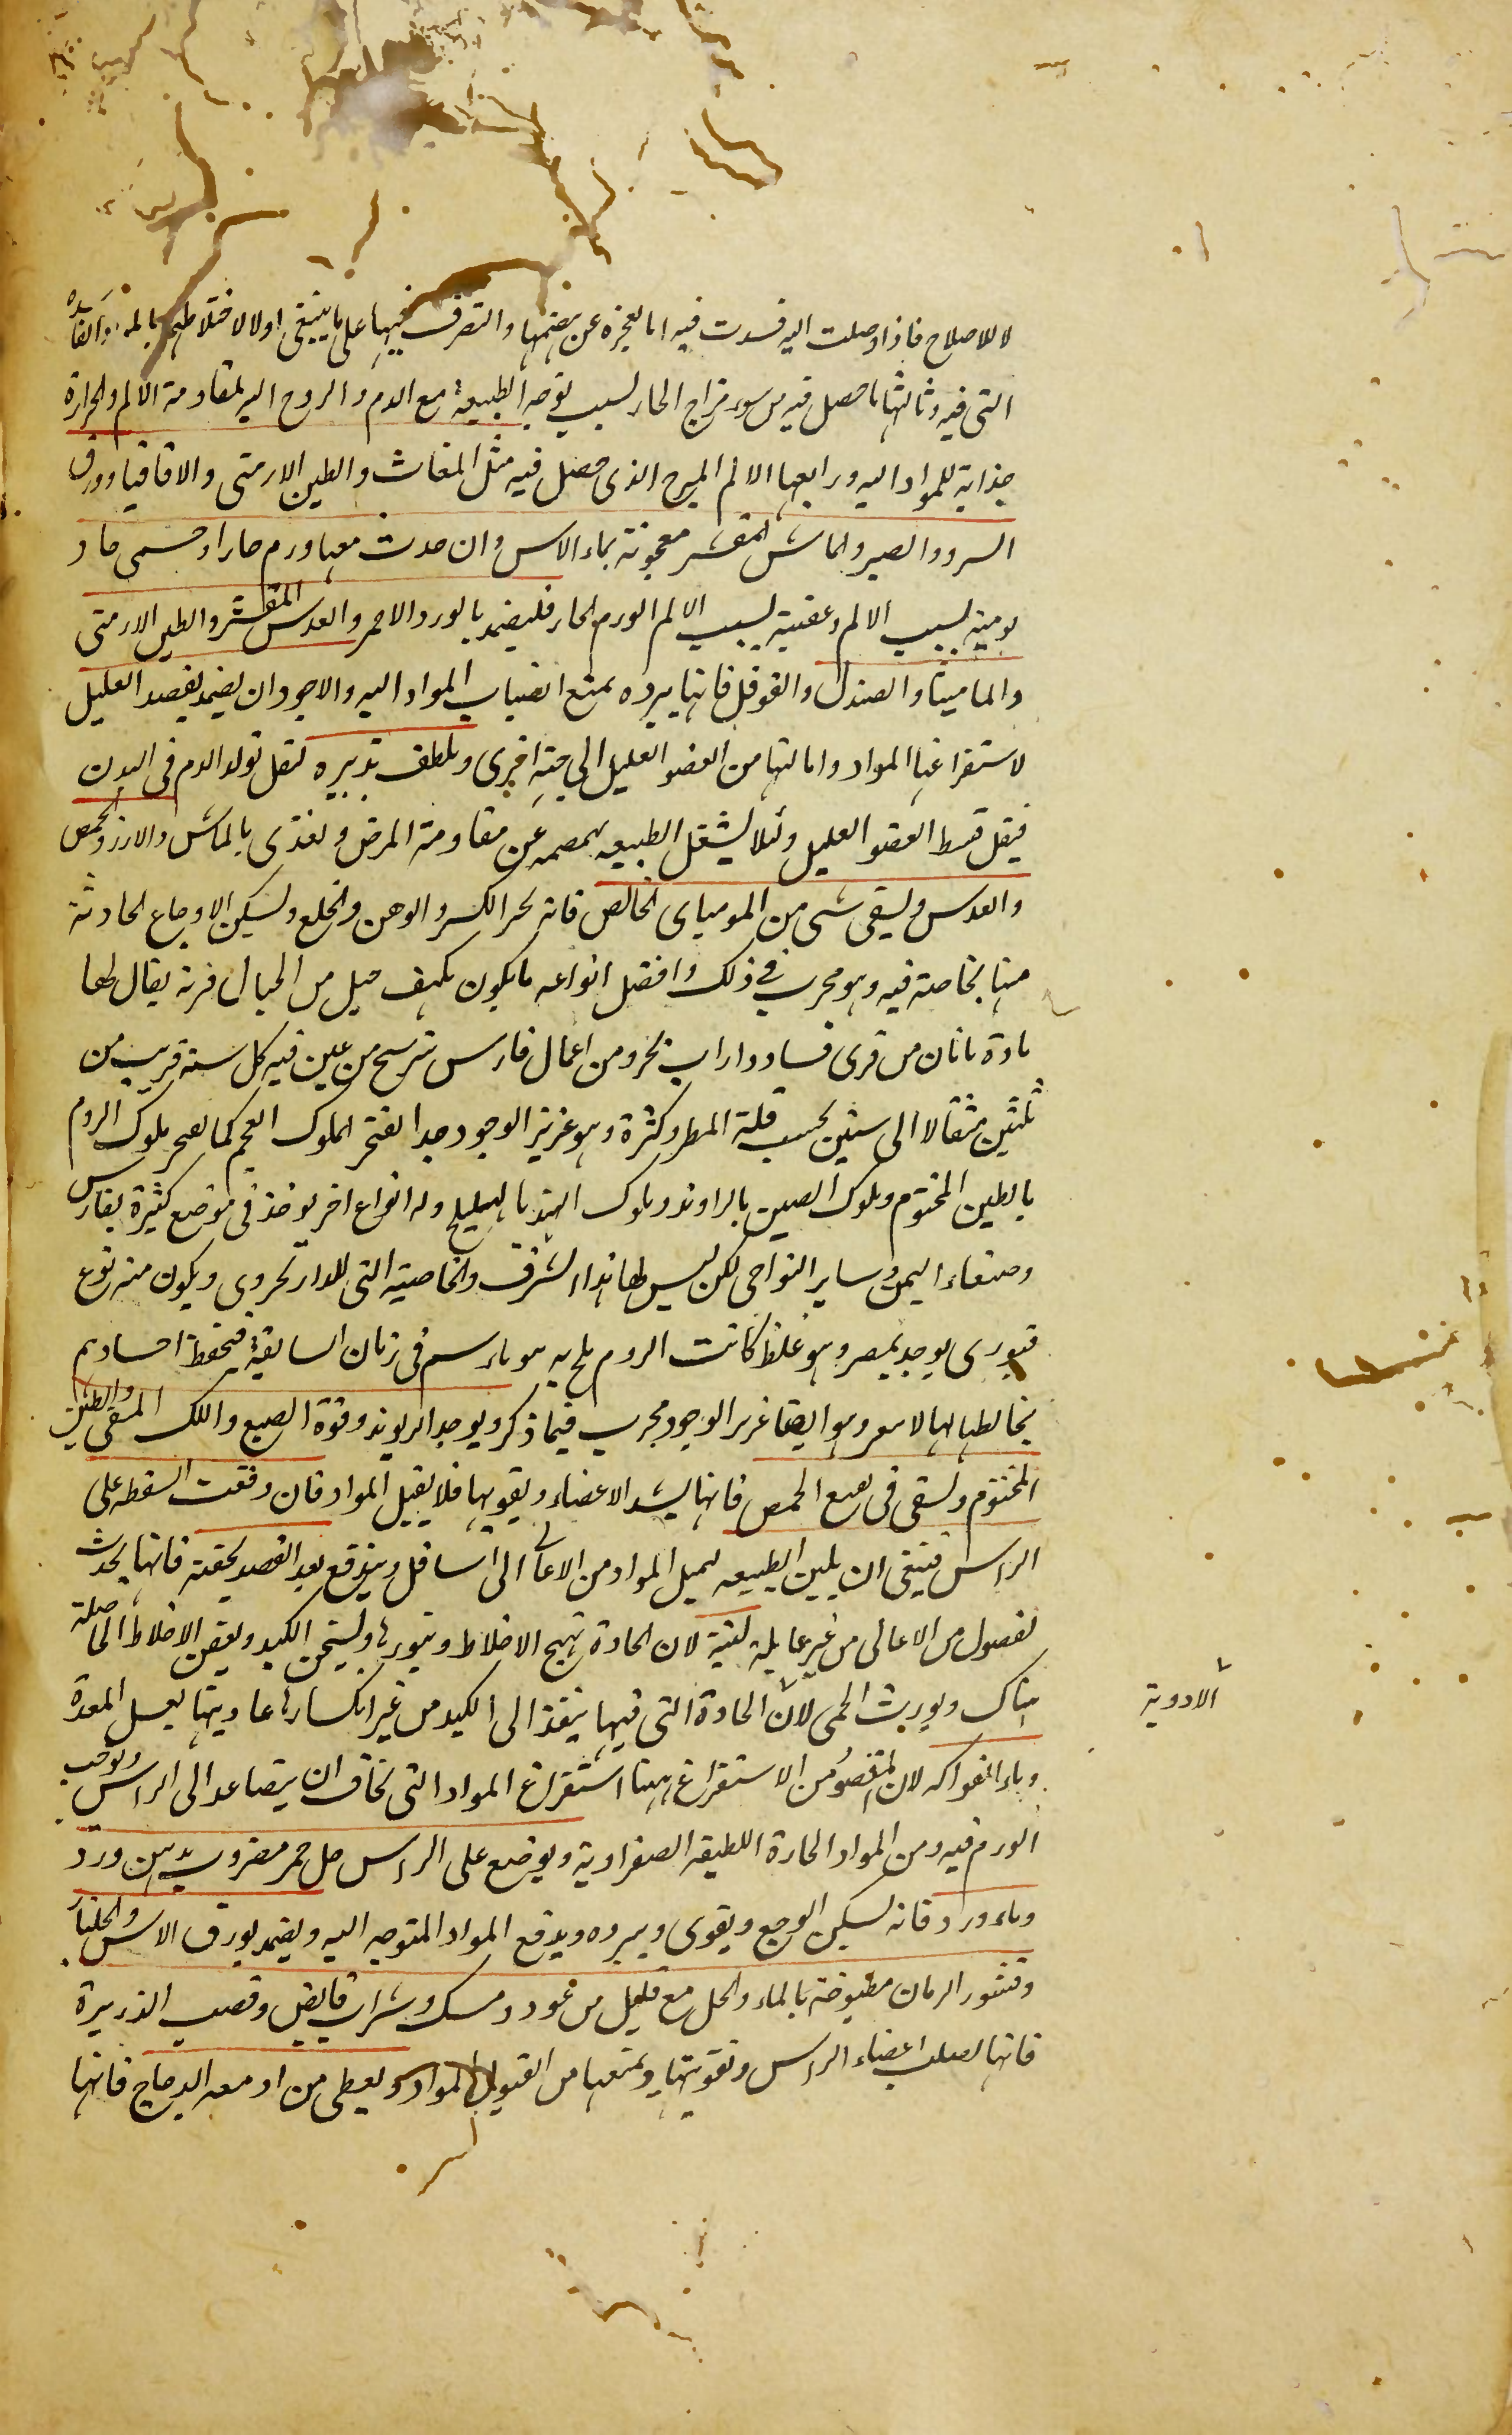 لا للاصلاح فاذا وصلت اليه فسدت فيه اما لعجزه عن هضمها والتصرف فيها على ما ينبغى اولا لاختلاطها بالمدة الفاسدة
التى فيه وثالثها ما حصل فيه من سوء مزاج الحار لسبب توجه الطبيعة مع الدم والروح اليه لمقاومة الالم والحرارة
جذابة للمواد اليه ورابعها الالم المبرح الذى حصل فيه مثل المغاث والطين الارمنى والاقاقيا وورق
السرو والصبر والماش المقشر معجونة بماء الاس وان حدث معها ورم حار او حمى حاد
يومية لسبب الالم وعفنية لسبب الالم الورم الحار فليضمد بالورد الاحمر والعدس المقشر والطين الارمنى
والماميثا والصندل والفوفل فانها يبرده يمنع انصباب المواد اليه والاجود ان يضمد بفصد العليل
لاستفراغها المواد وامالتها من العضو العليل الى جهة اخرى ويلطف تدبيره لتقل تولد الدم فى البدن
فيقل قسط العضو العليل ولئلا يشتغل الطبيعه بهضمه عن مقاومة المرض ويغذى بالماش والارز والحمص
والعدس ويسقى شى من المومياى الخالص فانه يجبر الكسر والوهن والخلع ويسكن الاوجاع الحادثة
منها بخاصة فيه وهو مجرب فى ذلك وافضل انواعه ما يكون بكهف جبل من الجبال قرية يقال لها
من قرى فسا ودارابجرد من اعمال فارس يترشح من عين فيه كل سنة قريب من
ثلثين مثقالا الى ستين بحسب قلة المطر وكثرة وهو عزيز الوجود جدا يفتخر الملوك العجم كما يفتخر ملوك الروم
بالطين المختوم وملوك الصين بالراوند وملوك الهند بالهليلج وله انواع اخر يوخذ فى موضع كثيرة بفارس
وصنعاء اليمن وساير النواحى لكن ليس لها هذا الشرف والخاصية التى للدارابجردى ويكون منه نوع
قبورى يوجد بمصر وهو غلظ كانت الروم يلج به موتاهم فى زمان السابقة فيحفظ اجسادهم
بخالطها وهو ايضا عزيز الوجود مجرب فيما ذكر ويوجد الريوند وفوة الصبغ واللك المنقى والطين
المختوم ويسقى فى نقيع الحمص فانها يشد الاعضاء ويقويها فلا يقبل المواد فان وقعت السقطة على
الراس فينبغى ان يلين الطبيعه ليميل المواد من الاعالى الى اسافل ويندفع بعد الفصد بحقنه فانها يحدث
لفضول من الاعالى من غير غايلة لينة لان الحادة تهيج الاخلاط ويثورها ويسخن الكبد ويعفن الاخلاط الحاصلة
هناك ويورث الحمى لان الحادة التى فيها ينفذ الى الكبد من غير انكسارها عاديتها بغسل المعدة
الادوية
وماء الفواكه لان المقصود من الاستفراغ ههنا استفراغ المواد التى يخاف ان يتصاعد الى الراس ويوجب
الورم فيه ومن المواد الحارة اللطيفه الصفراوية ويوضع على الراس خل خمر مضروب بدهن ورد
وماء ورد فانه يسكن الوجع ويقوى ويبرده ويدفع المواد المتوجه اليه ويضمد بورق الاس والجلنار
وقشور الرمان مطبوخة بالماء والخل مع قليل من عود ومسك وشراب قابض وقصب الذريرة
فانها يصلب اعضاء الراس وتقويتها ويمنعها من القبول المواد ويعطى من ادمغة الدجاج فانها